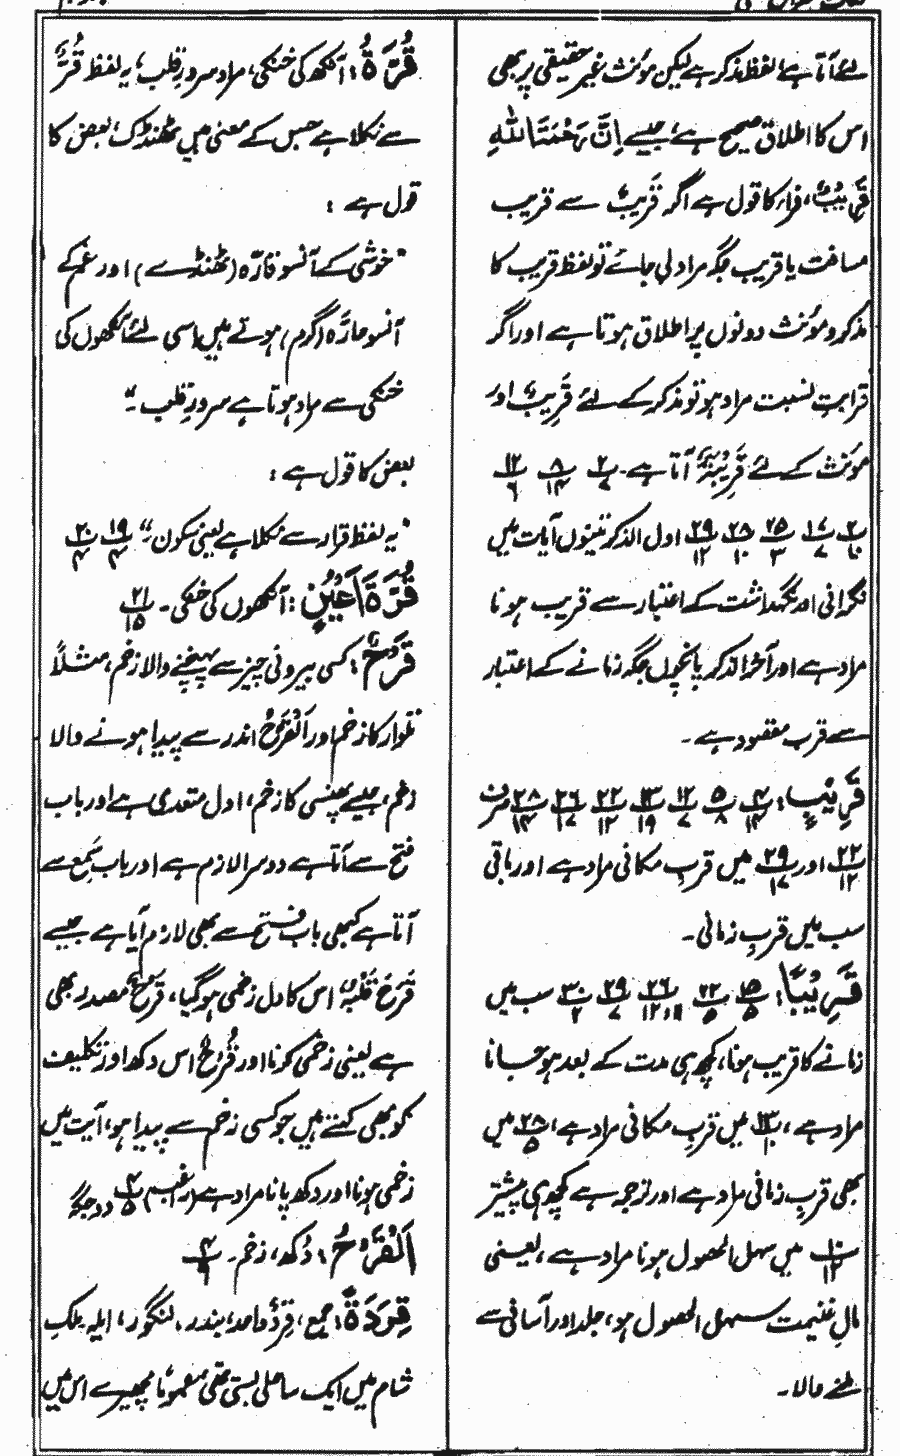 لئے آتا ہے، لفظ مذکر ہے لیکن مؤنث غیر حقیقی پر بھی
اس کا اطلاق صحیح ہے، جیسے اِنَّ رَحْمَتَ اللّٰہِ
قَرِیْبٌ، فراء کا قول ہے اگر قَرِیبٌ سے قریب
مسافت یا قریب جگہ مراد لی جائے تو لفظ قریب کا
مذکر و مؤنث دونوں پر اطلاق ہوتا ہے اور اگر
قرابتِ نسبت مراد ہو تو مذکر کے لئے قَرِیبٌ اور
مؤنث کے لئے قَرِیْبَۃٌ آتا ہے۔ ۲/۷ ۸/۱۴ ۱۲/۶
۲/۱۰ ۱۷/۷ ۲۵/۳ ۲۸/۱۰ ۲۹/۱۲ اول الذکر تینوں آیات میں
نگرانی اور نگہداشت کے اعتبار سے قریب ہونا
مراد ہے اور آخر الذکر پانچوں جگہ زمانے کے اعتبار
سے قرب مقصود ہے۔
قَرِیْبٍ: ۴/۱۴ ۵/۸ ۱۲/۷ ۱۳/۱۹ ۲۲/۱۲ ۲۶/۱۷ ۲۸/۱۴ صرف
۲۲/۱۲ اور ۲۹/۱۷ میں قربِ مکانی مراد ہے اور باقی
سب میں قربِ زمانی۔
قَرِیْبًا: ۱۵/۵ ۲۲/۵ ۲۶/۱۲،۱۱ ۲۹/۷ ۳۰/۲ سب میں
زمانے کا قریب ہونا، کچھ ہی مدت کے بعد ہو جانا
مراد ہے، ۱۳/۱ میں قربِ مکانی مراد ہے، ۲۸/۵ میں
بھی قربِ زمانی مراد ہے اور ترجمہ ہے کچھ ہی پیشتر
۱۰/۱۲ میں سہل الحصول ہونا مراد ہے، یعنی
مالِ غنیمت سہل الحصول ہو، جلد اور آسانی سے
ملنے والا۔
قُرَّۃُ: آنکھ کی خنکی، مراد سرورِ قلب، یہ لفظ قُرٌّ
سے نکلا ہے جس کے معنی ہیں ٹھنڈک، بعض کا
قول ہے :
" خوشی کے آنسو قارّہ (ٹھنڈے) اور غم کے
آنسو حارّہ (گرم) ہوتے ہیں اسی لئے آنکھوں کی
خنکی سے مراد ہوتا ہے سرورِ قلب۔"
بعض کا قول ہے :
" یہ لفظ قرار سے نکلا ہے یعنی سکون۔" ۱۹/۴ ۲۰/۴
قُرَّۃَ اَعْیُنٍ : آنکھوں کی خنکی۔ ۲۱/۱۵
قَرْحٌ: کسی بیرونی چیز سے پہنچنے والا زخم، مثلاً
تلوار کا زخم اور اَلْقُرْحُ اندر سے پیدا ہونے والا
زخم، جیسے پھنسی کا زخم، اول متعدی ہے اور باب
فتح سے آتا ہے دوسرا لازم ہے اور باب سَمِعَ سے
آتا ہے کبھی باب فتح سے بھی لازم آیا ہے جیسے
قَرَحَ قَلْبُہٗ اس کا دل زخمی ہو گیا، قَرْحٌ مصدر بھی
ہے یعنی زخمی کرنا اور قُرْحٌ اس دکھ اور تکلیف
کو بھی کہتے ہیں جو کسی زخم سے پیدا ہو، آیت میں
زخمی ہونا اور دکھ پانا مراد ہے (راغب) ۴/۵ دو جگہ
اَلْقَرْحُ : دُکھ، زخم۔ ۴/
قِرَدَۃً: جمع، قِرْدٌ واحد، بندر، لنگور، ایلہ ملکِ
شام میں ایک ساحلی بستی تھی عموماً مچھیرے اس میں